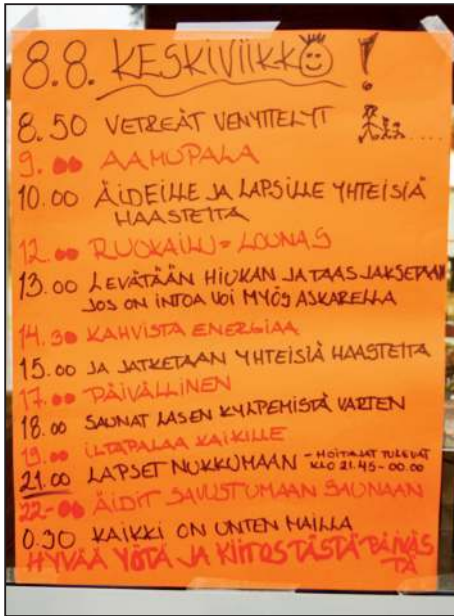 8.8. KESKIVIIKKO !
8.50 VETREÄT VENYTTELYT
9.00 AAMUPALA
10.00 ÄIDEILLE JA LAPSILLE YHTEISIÄ
HAASTEITA
12.00 RUOKAILU = LOUNAS
13.00 LEVÄTÄÄN HIUKAN JA TAAS JAKSETAAN
JOS ON INTOA VOI MYÖS ASKARELLA
14.30 KAHVISTA ENERGIAA
15.00 JA JATKETAAN YHTEISIÄ HAASTEITA
17.00 PÄIVÄLLINEN
18.00 SAUNAT LASEN KYLPEMISTÄ VARTEN
19.00 ILTAPALAA KAIKILLE
21.00 LAPSET NUKKUMAAN - HOITAJAT TULEVAT
KLO 21.45-00.00
22-00 ÄIDIT SAVUSTUMAAN SAUNAAN
0.30 KAIKKI ON UNTEN MAILLA
HYVÄÄ YÖTÄ JA KIITOS TÄSTÄ PÄIVÄS
TÄ